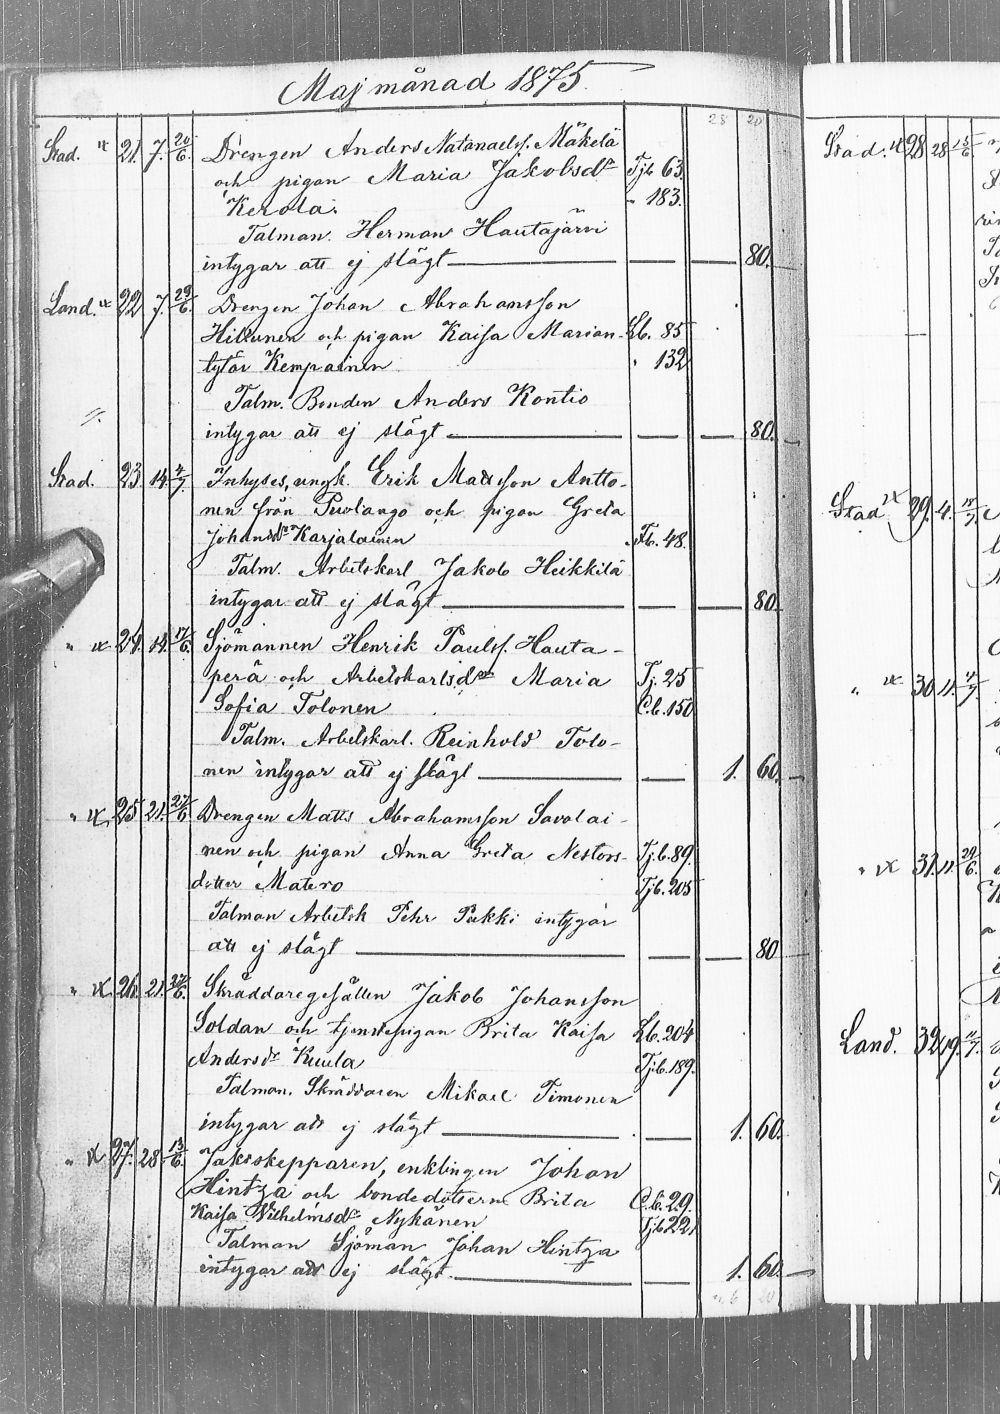 Maj månad 1875.
28 20
Stad. 21. 7. 20/6. Drengen Anders Natanaelss. Mäkelä
och pigan Maria Jakobsdr Tjb 63.
Kerola. " 183.
Talman. Herman Hautajärvi
intygar att ej slägt 80.
Land. 22. 7. 29/6. Drengen Johan Abrahamsson
Hiltunen och pigan Kaisa Marian- Lb. 85
tytär Kempainen " 132
Talm. Bonden Anders Kontio
intygar att ej slägt 80.
Stad. 23. 14. 4/7. Inhyses, ungk. Erik Mattsson Antto-
nen från Puolango och pigan Greta
Johansdr Karjalainen Fb. 48.
Talm. Arbetskarl Jakob Heikkilä
intygar att ej slägt 80.
" 24. 14. 17/6. Sjömannen Henrik Paulss. Hauta-
perä och Arbetskarlsdn Maria Tj. 25
Sofia Tolonen C.b. 150
Talm. Arbetskarl. Reinhold Tolo-
nen intygar att ej slägt 1. 60.
" 25 21. 27/6 Drengen Matts Abrahamsson Savolai-
nen och pigan Anna Greta Nestors- Tj.b. 89.
dotter Matero Tjb. 205
Talman Arbetsk Pehr Pukki intygar
att ej slägt 80
" 26. 21. 27/6. Skräddaregesällen Jakob Johansson
Soldan och tjenstepigan Brita Kaisa Lb. 204
Andersdr Kuula Tjb. 189.
Talman. Skräddaren Mikael Timonen
intygar att ej slägt 1. 60.
" 27. 28. 13/6. Jaktskepparen, enklingen Johan
Hintza och bondedottern Brita C.b. 29.
Kaisa Vilhelmsdr Nykänen Tjb 221
Talman Sjöman Johan Hintza
intygar att ej slägt. 1. 60.
Stad. 28 28 13/6.
Stad 29. 4.
" 30. 11. 4/7.
" 31. 11. 29/6.
Land. 32. 19.